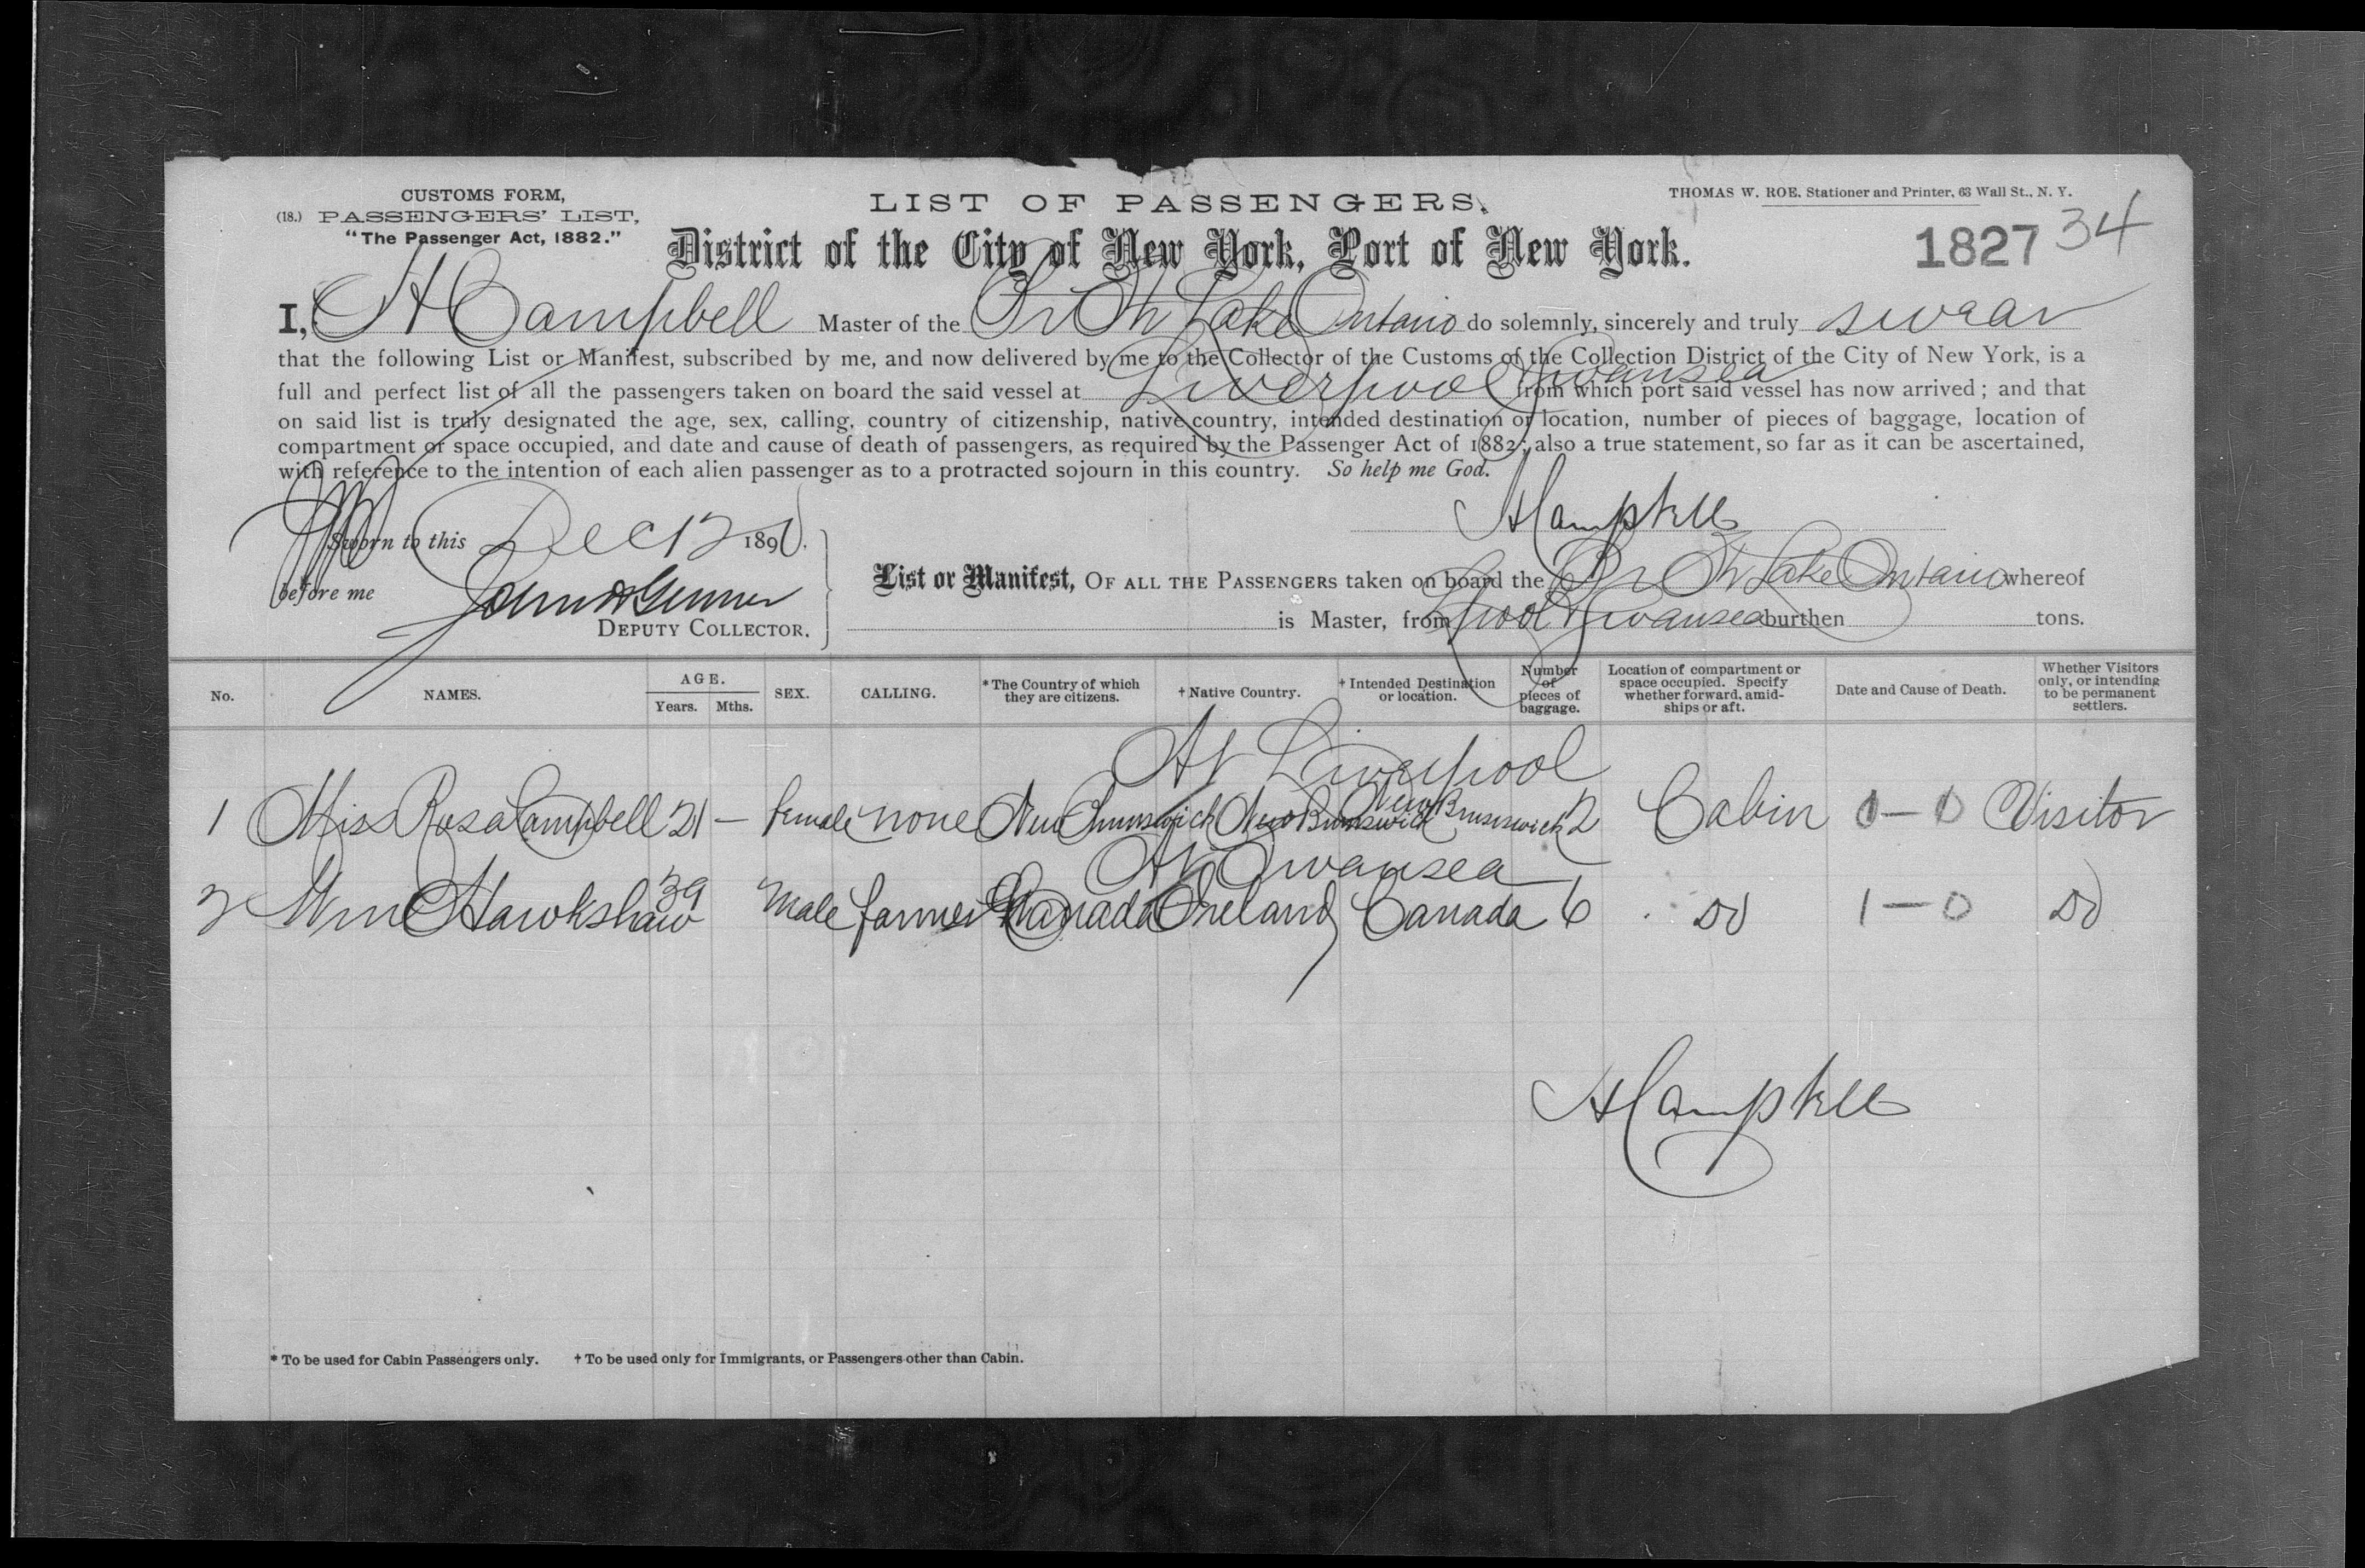 CUSTOMS FORM,
(18.) PASSENGERS' LIST,
"The Passenger Act, 1882."
LIST OF PASSENGERS.
THOMAS W. ROE. Stationer and Printer, 63 Wall St., N. Y.
District of the City of New York, Port of New York.
1827 34
I, H Campbell Master of the Br Str Lake Ontario do solemnly, sincerely and truly swear
that the following List or Manifest, subscribed by me, and now delivered by me to the Collector of the Customs of the Collection District of the City of New York, is a
full and perfect list of all the passengers taken on board the said vessel at Liverpool Swansea from which port said vessel has now arrived; and that
on said list is truly designated the age, sex, calling, country of citizenship, native country, intended destination or location, number of pieces of baggage, location of
compartment or space occupied, and date and cause of death of passengers, as required by the Passenger Act of 1882; also a true statement, so far as it can be ascertained,
with reference to the intention of each alien passenger as to a protracted sojourn in this country. So help me God.
H Campbell
Sworn to this Dec 12 189
before me
DEPUTY COLLECTOR.
List or Manifest, OF ALL THE PASSENGERS taken on board the Br Str Lake Ontario whereof
is Master, from Lpool & Swansea burthen tons.
No. NAMES. AGE. Years. Mths. SEX. CALLING. *The Country of which they are citizens. †Native Country. †Intended Destination or location. Number of pieces of baggage. Location of compartment or space occupied. Specify whether forward, amidships or aft. Date and Cause of Death. Whether Visitors only, or intending to be permanent settlers.
At Liverpool
1 Miss Rosa Campbell 21 — female none New Brunswick New Brunswick New Brunswick 2 Cabin 0—0 Visitor
At Swansea
2 Wm Hawkshaw 39 Male farmer Canada Ireland Canada 6 Do 1—0 Do
H Campbell
* To be used for Cabin Passengers only. † To be used only for Immigrants, or Passengers other than Cabin.